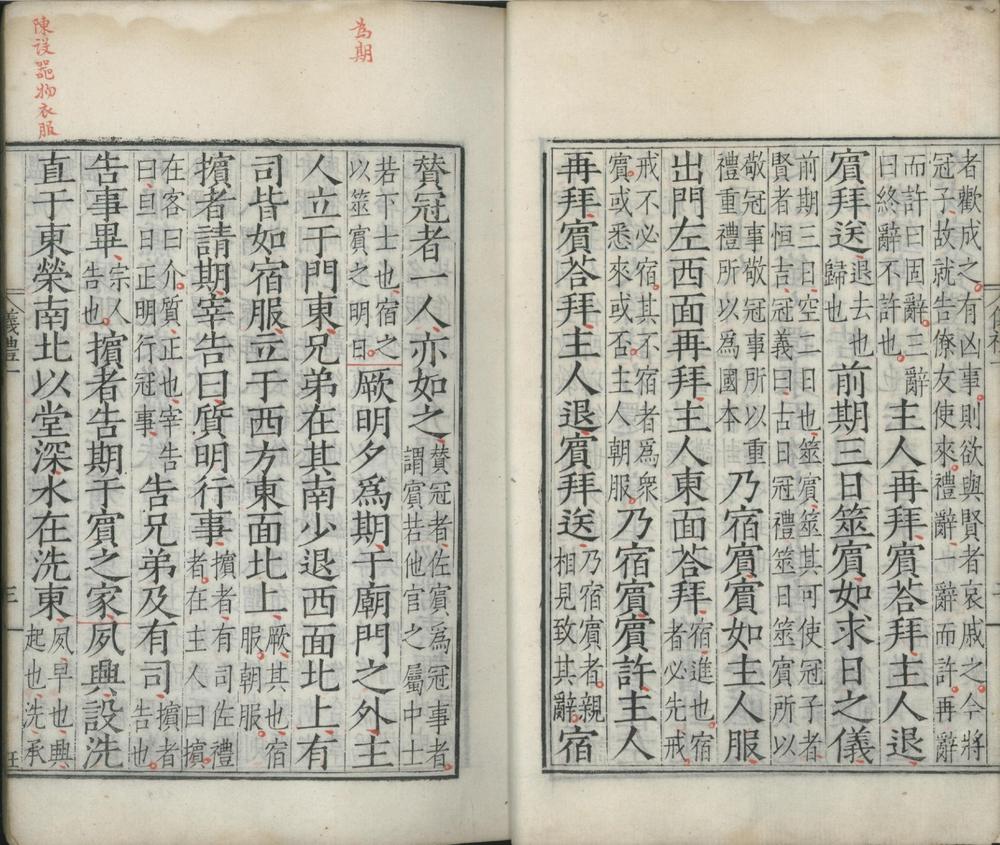 者歡成之有凶事則欲與賢者哀戚之今將
冠子故就告僚友使來禮辭一辭而許再辭
而許曰固辭三辭
曰終辭不許也
主人再拜賓荅拜主人退
賓拜送退去也歸也前期三日筮賓如求日之儀
前期三日空二日也筮賓筮其可使冠子者
賢者恒吉冠義曰古曰冠禮筮日筮賓所以
敬冠事敬冠事所以重
禮重禮所以為國本
乃宿賓賓如主人服
出門左西面再拜主人東面荅拜宿進也宿者必先戒
戒不必宿其不宿者爲衆
賓或悉來或否主人朝服
乃宿賓賓許主人
再拜賓荅拜主人退賓拜送乃宿賓者親相見致其辭宿
為期
贊冠者一人亦如之贊冠者佐賓爲冠事者謂賓若他官之屬中士
若下士也宿之
以筮賓之明日
厥明夕爲期于廟門之外主
人立于門東兄弟在其南少退西面北上有
司皆如宿服立于西方東面北上厥其也宿服朝服
擯者請期宰告曰質明行事擯者有司佐禮者在主人曰擯
在客曰介質正也宰告
曰旦日正明行冠事
告兄弟及有司擯者告也
告事畢宗人告也擯者告期于賓之家夙興設洗
直于東榮南北以堂深水在洗東夙早也興起也洗承
陳設器物衣服
儀禮一
三